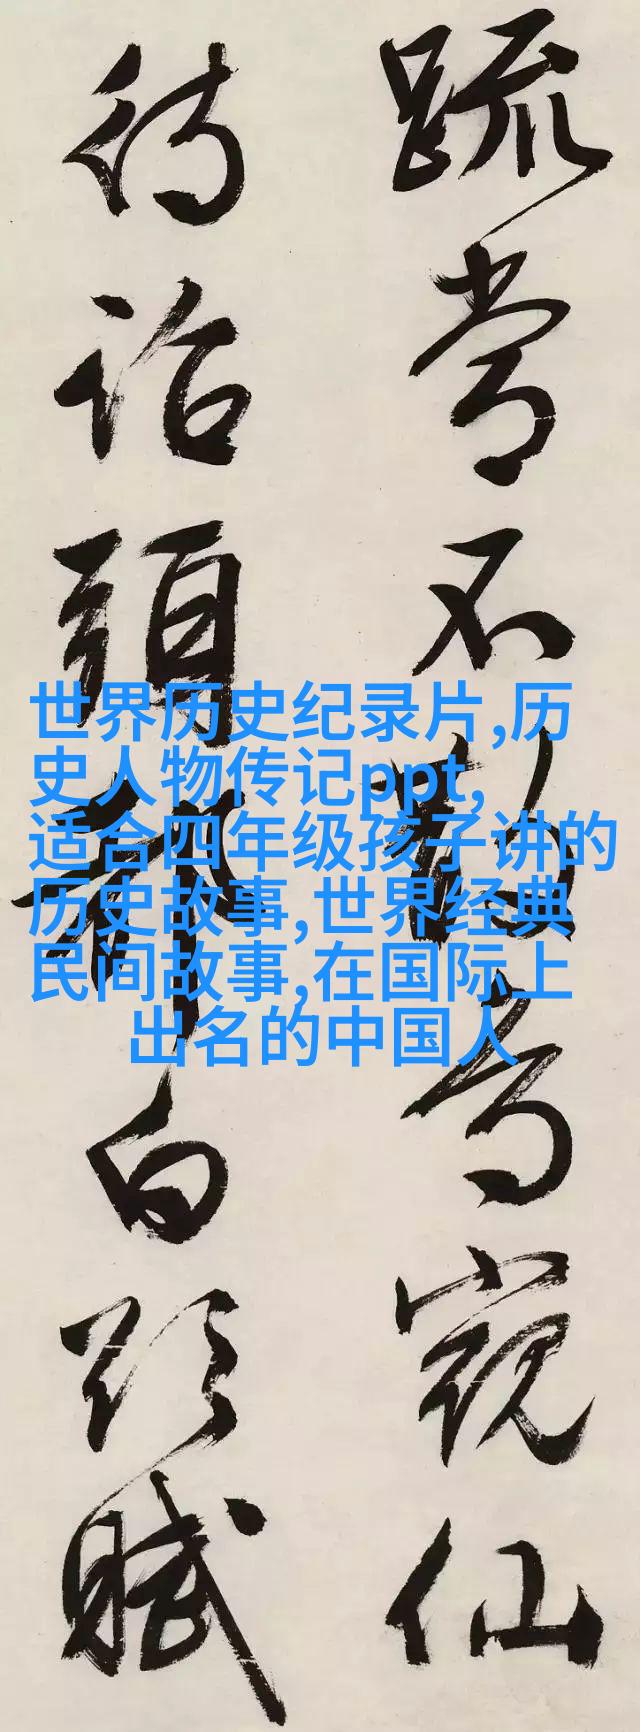 疏常不
仙
待詔頭
白
賦
世界历史纪录片,历
史人物传记ppt,
适合四年级孩子讲的
历史故事,世界经典
民间故事,在国际上
出名的中国人